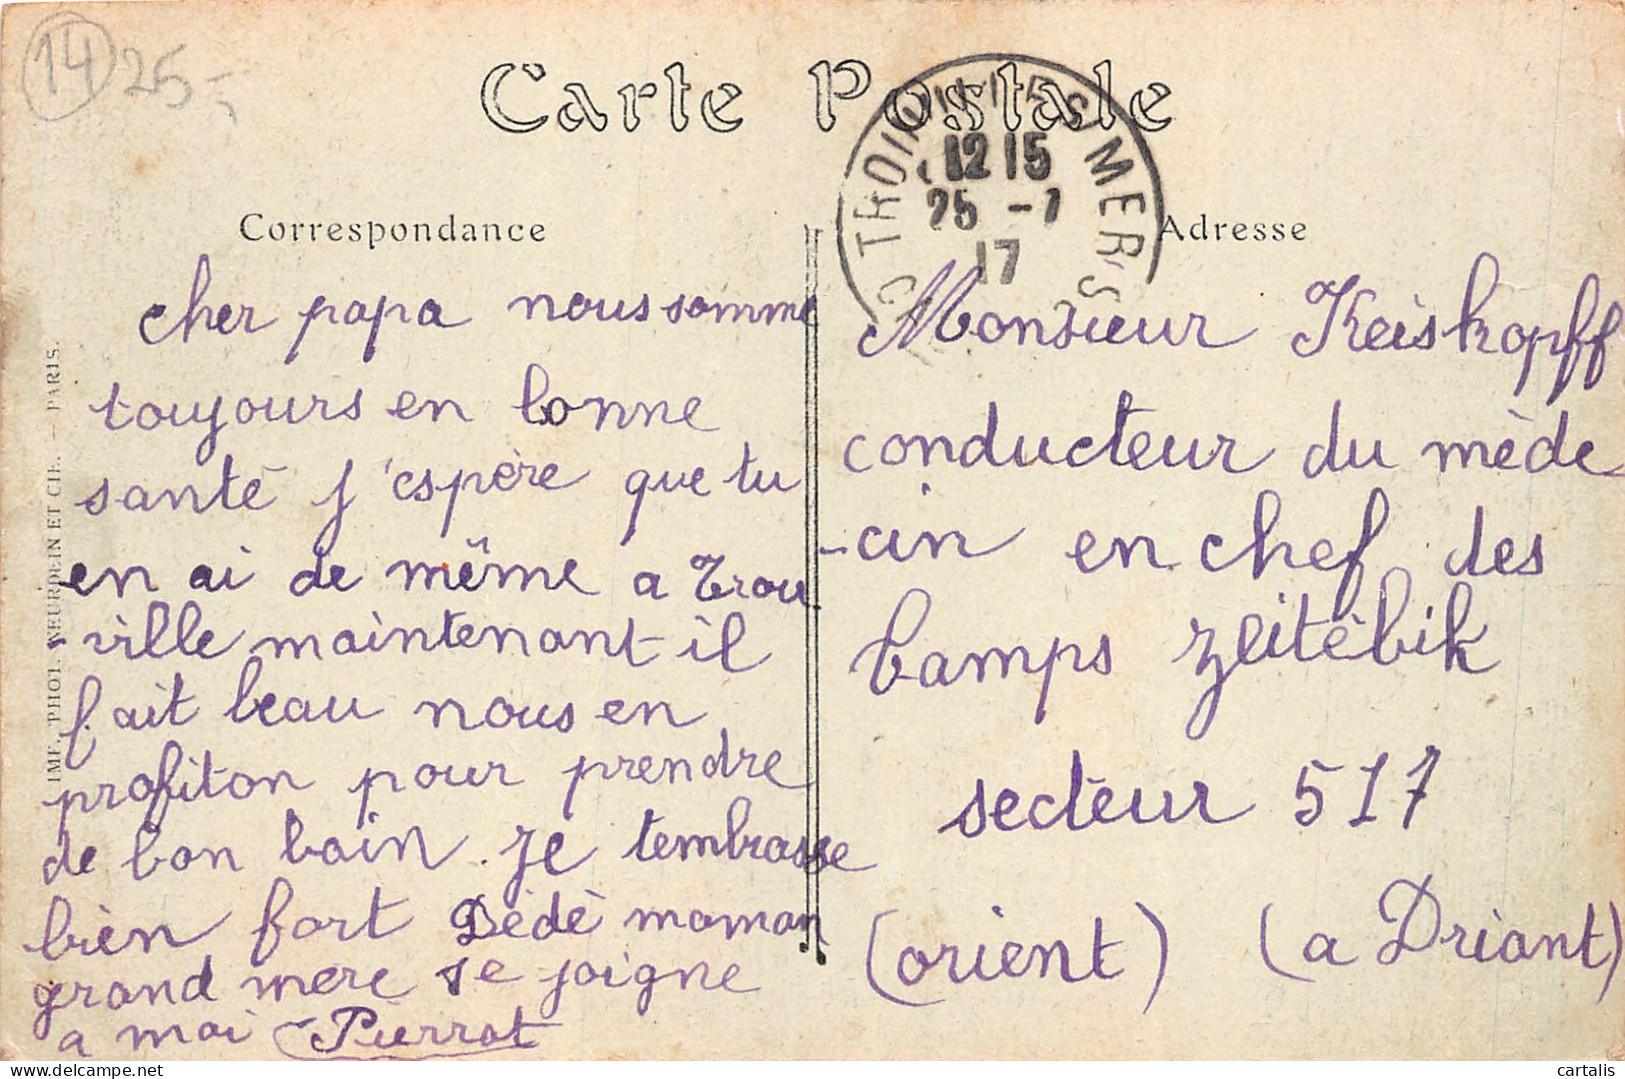 14 25-
Carte Postale
12 15
25 -7
17
Correspondance
cher papa nous somme
toujours en bonne
santé j'espère que tu
en ai de même a Trou
-ville maintenant il
fait beau nous en
profiton pour prendre
de bon bain. je tembrasse
bien fort Dédé maman
grand mere se joigne
a moi Pierrot
Adresse
Monsieur Keiskopff
conducteur du mède
-cin en chef des
camps zeitèbik
secteur 517
(orient) (a Driant)
IMP. PHOT. NEURDEIN ET CIE. — PARIS.
cartalis
delcampe.net